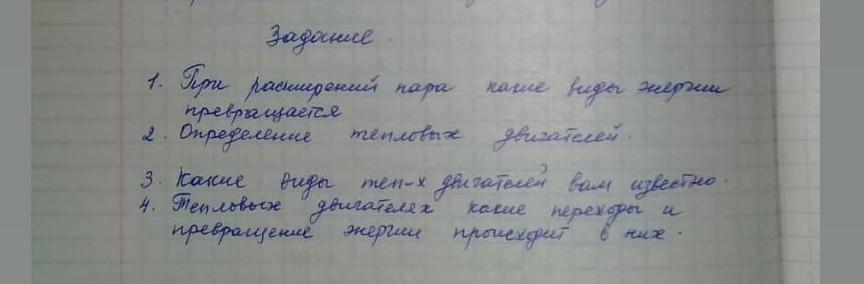 Задание.
1. При расширений пара какие виды энергии
превращается
2. Определение тепловых двигателей.
3. Какие виды теп-х двигателей вам известно.
4. Тепловых двигателех какие переходы и
превращение энергии происходит в них.